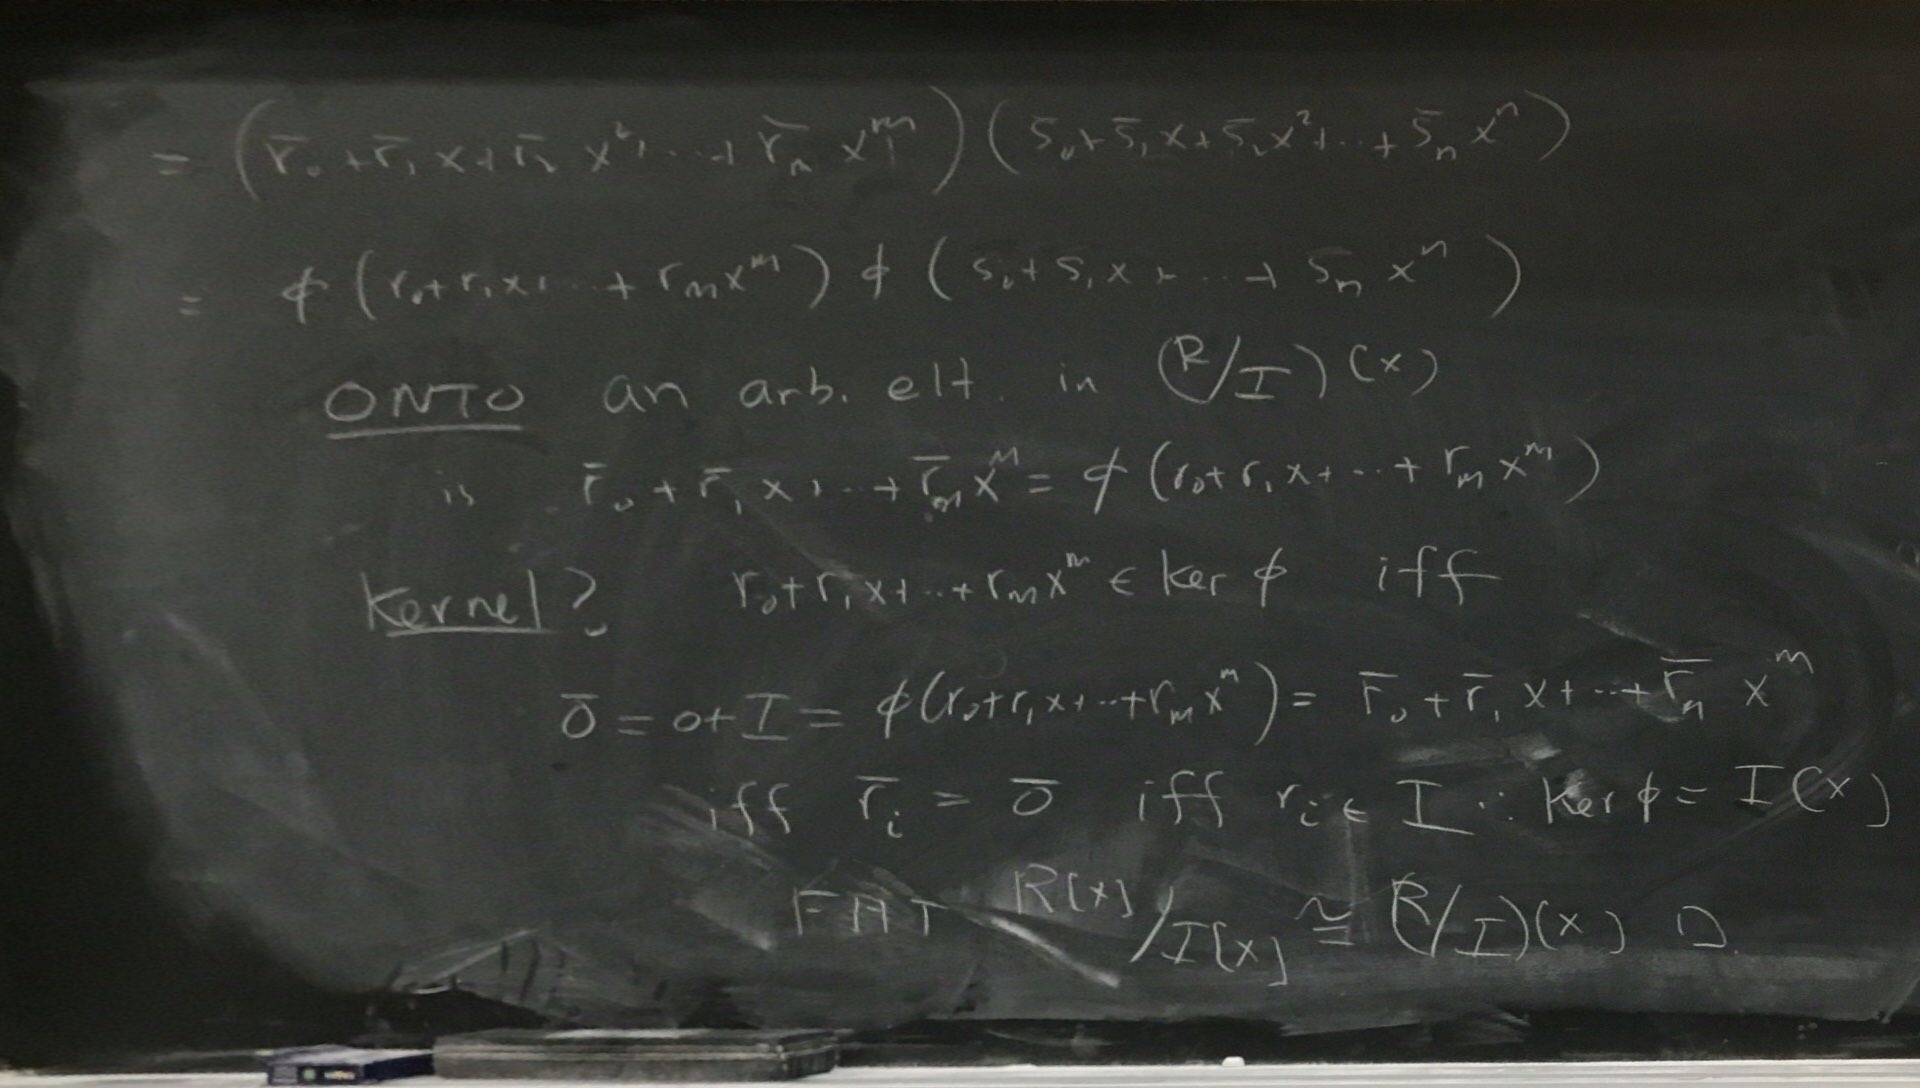 = (r̄₀ + r̄₁ x + r̄₂ x² + ... + r̄ₘ xᵐ) (s̄₀ + s̄₁ x + s̄₂ x² + ... + s̄ₙ xⁿ)
= ϕ (r₀ + r₁ x + ... + rₘ xᵐ) ϕ (s₀ + s₁ x + ... + sₙ xⁿ)
ONTO an arb. elt. in (R/I)(x)
is r̄₀ + r̄₁ x + ... + r̄ₘ xᵐ = ϕ (r₀ + r₁ x + ... + rₘ xᵐ)
Kernel? r₀ + r₁ x + ... + rₘ xᵐ ∈ ker ϕ iff
0̄ = 0 + I = ϕ(r₀ + r₁ x + ... + rₘ xᵐ) = r̄₀ + r̄₁ x + ... + r̄ₘ xᵐ
iff r̄ᵢ = 0̄ iff rᵢ ∈ I ∴ Ker ϕ = I(x)
FHT R(x)/I[x] ≅ (R/I)(x) □